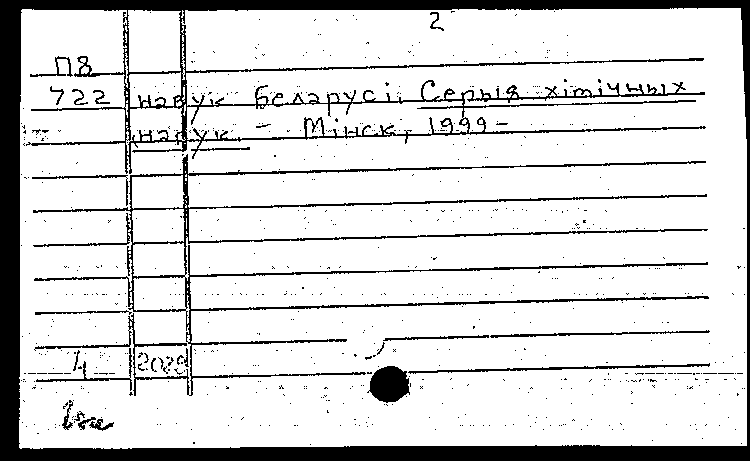 2
П8
722 навук Беларусі. Серыя хімічных
навук. – Мінск, 1999–
4 2028